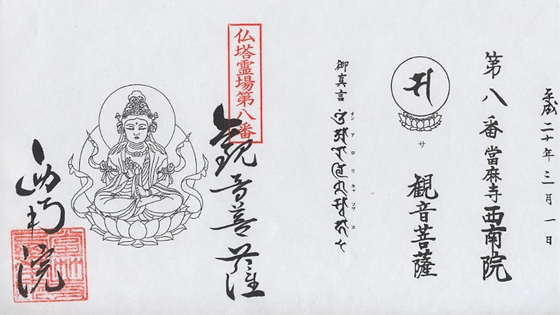 平成二十年三月一日
第八番當麻寺西南院
サ
観音菩薩
御真言
オン ア ロ リ キャ ソワ カ
仏塔霊場第八番
觀音菩薩
西南院